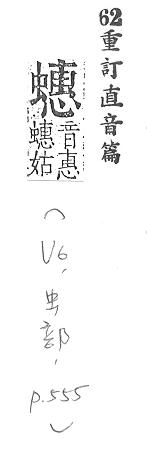 62重訂直音篇
蟪
音惠
蟪姑
(V6,虫部,p.555)